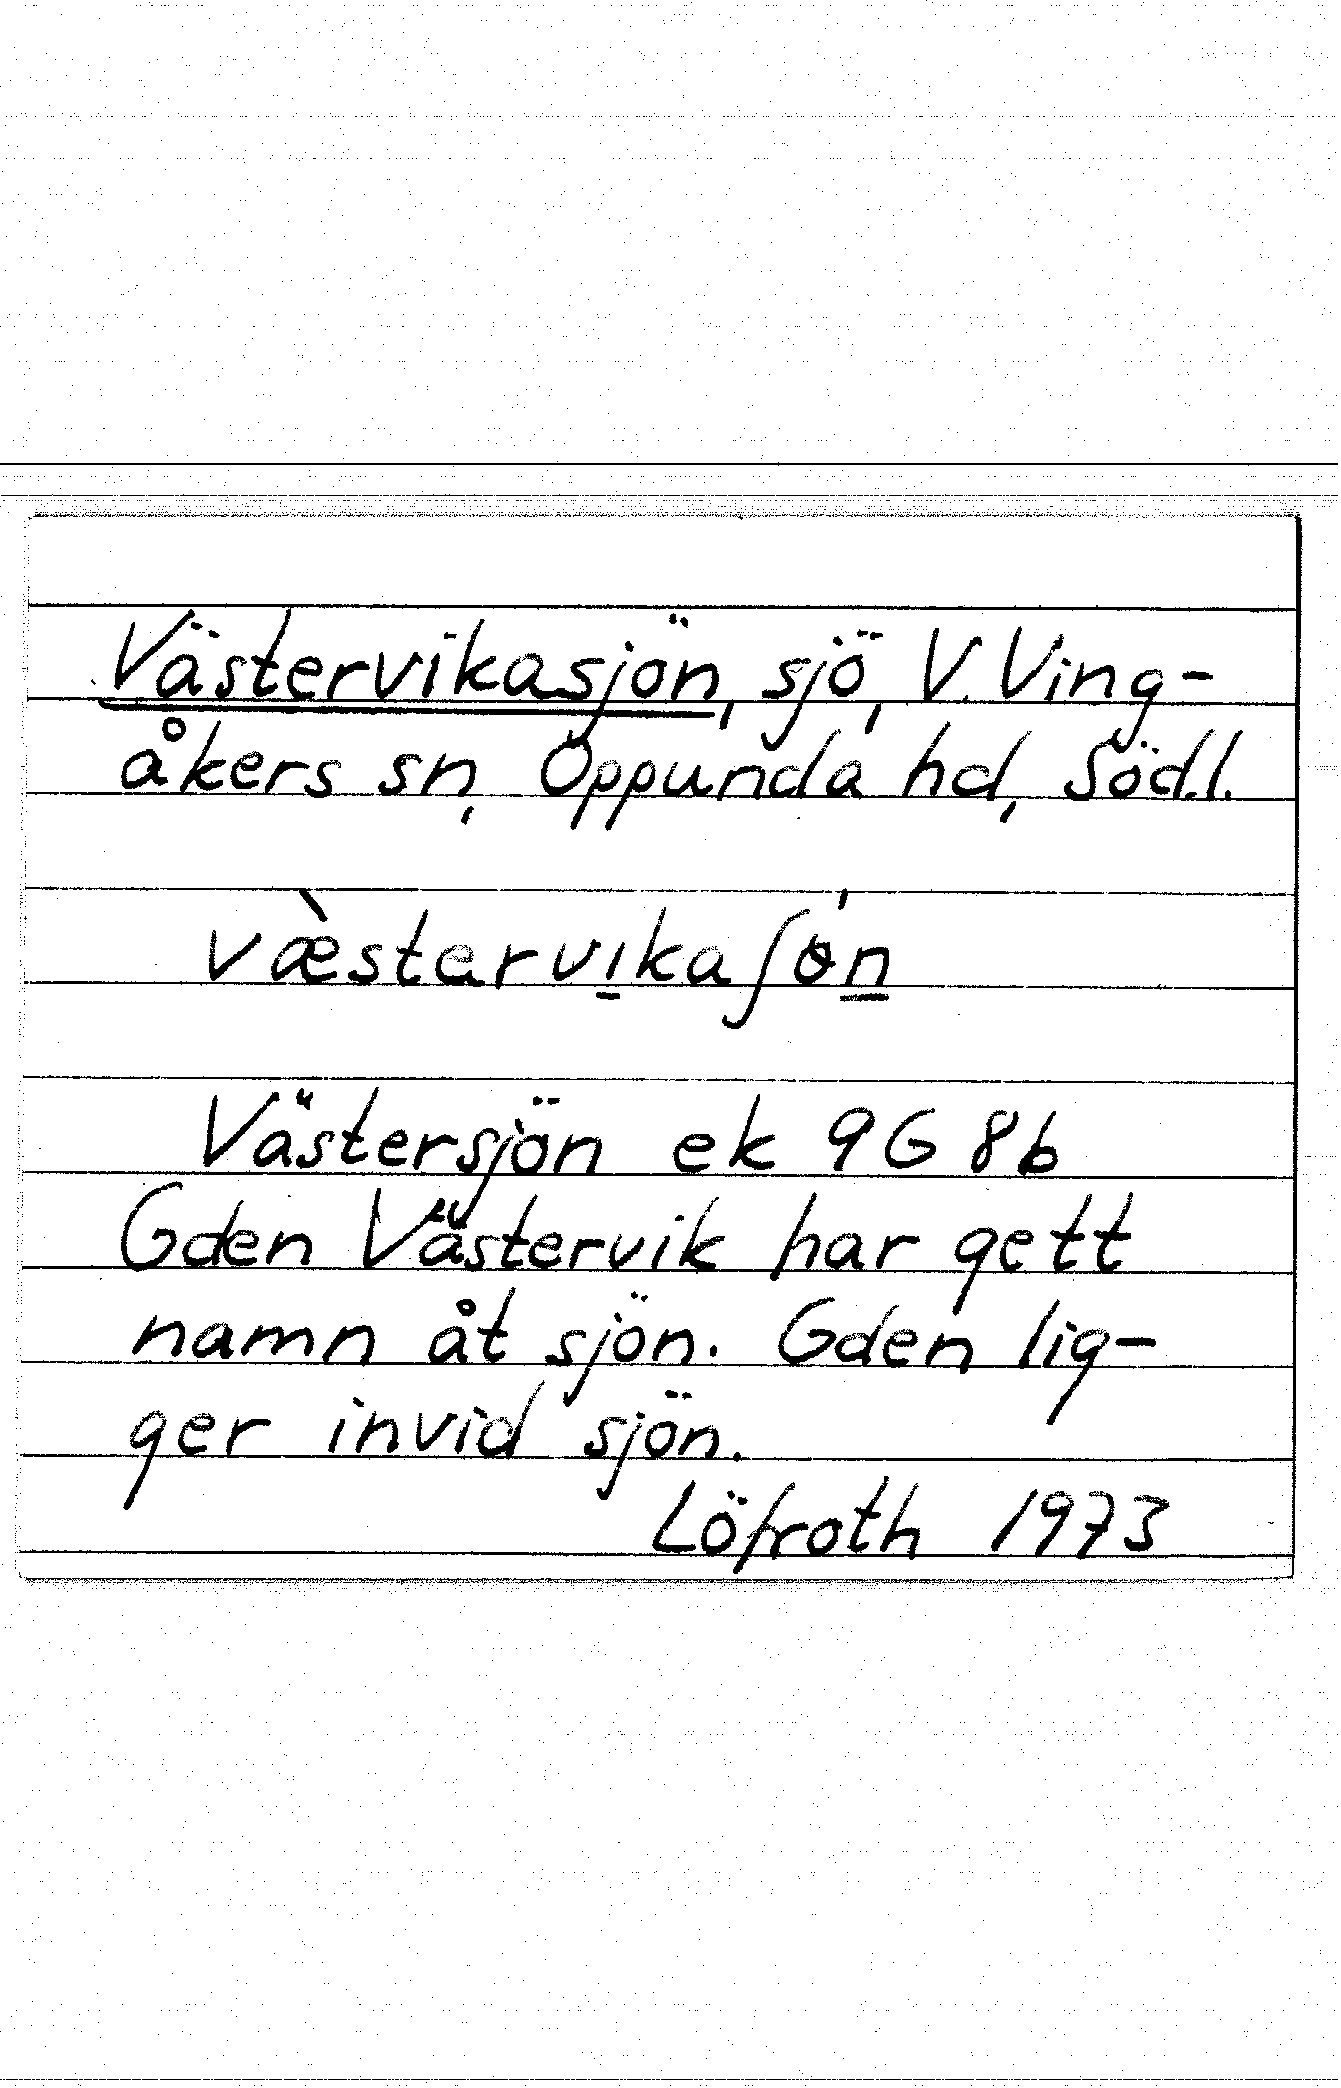 Västervikasjön, sjö, V. Ving-
åkers sn, Oppunda hd, Södl.
væ̀stervı̱kaʃɵ́ṉ
Västersjön ek 9G 8b
Gden Västervik har gett
namn åt sjön. Gden lig-
ger invid sjön.
Löfroth 1973